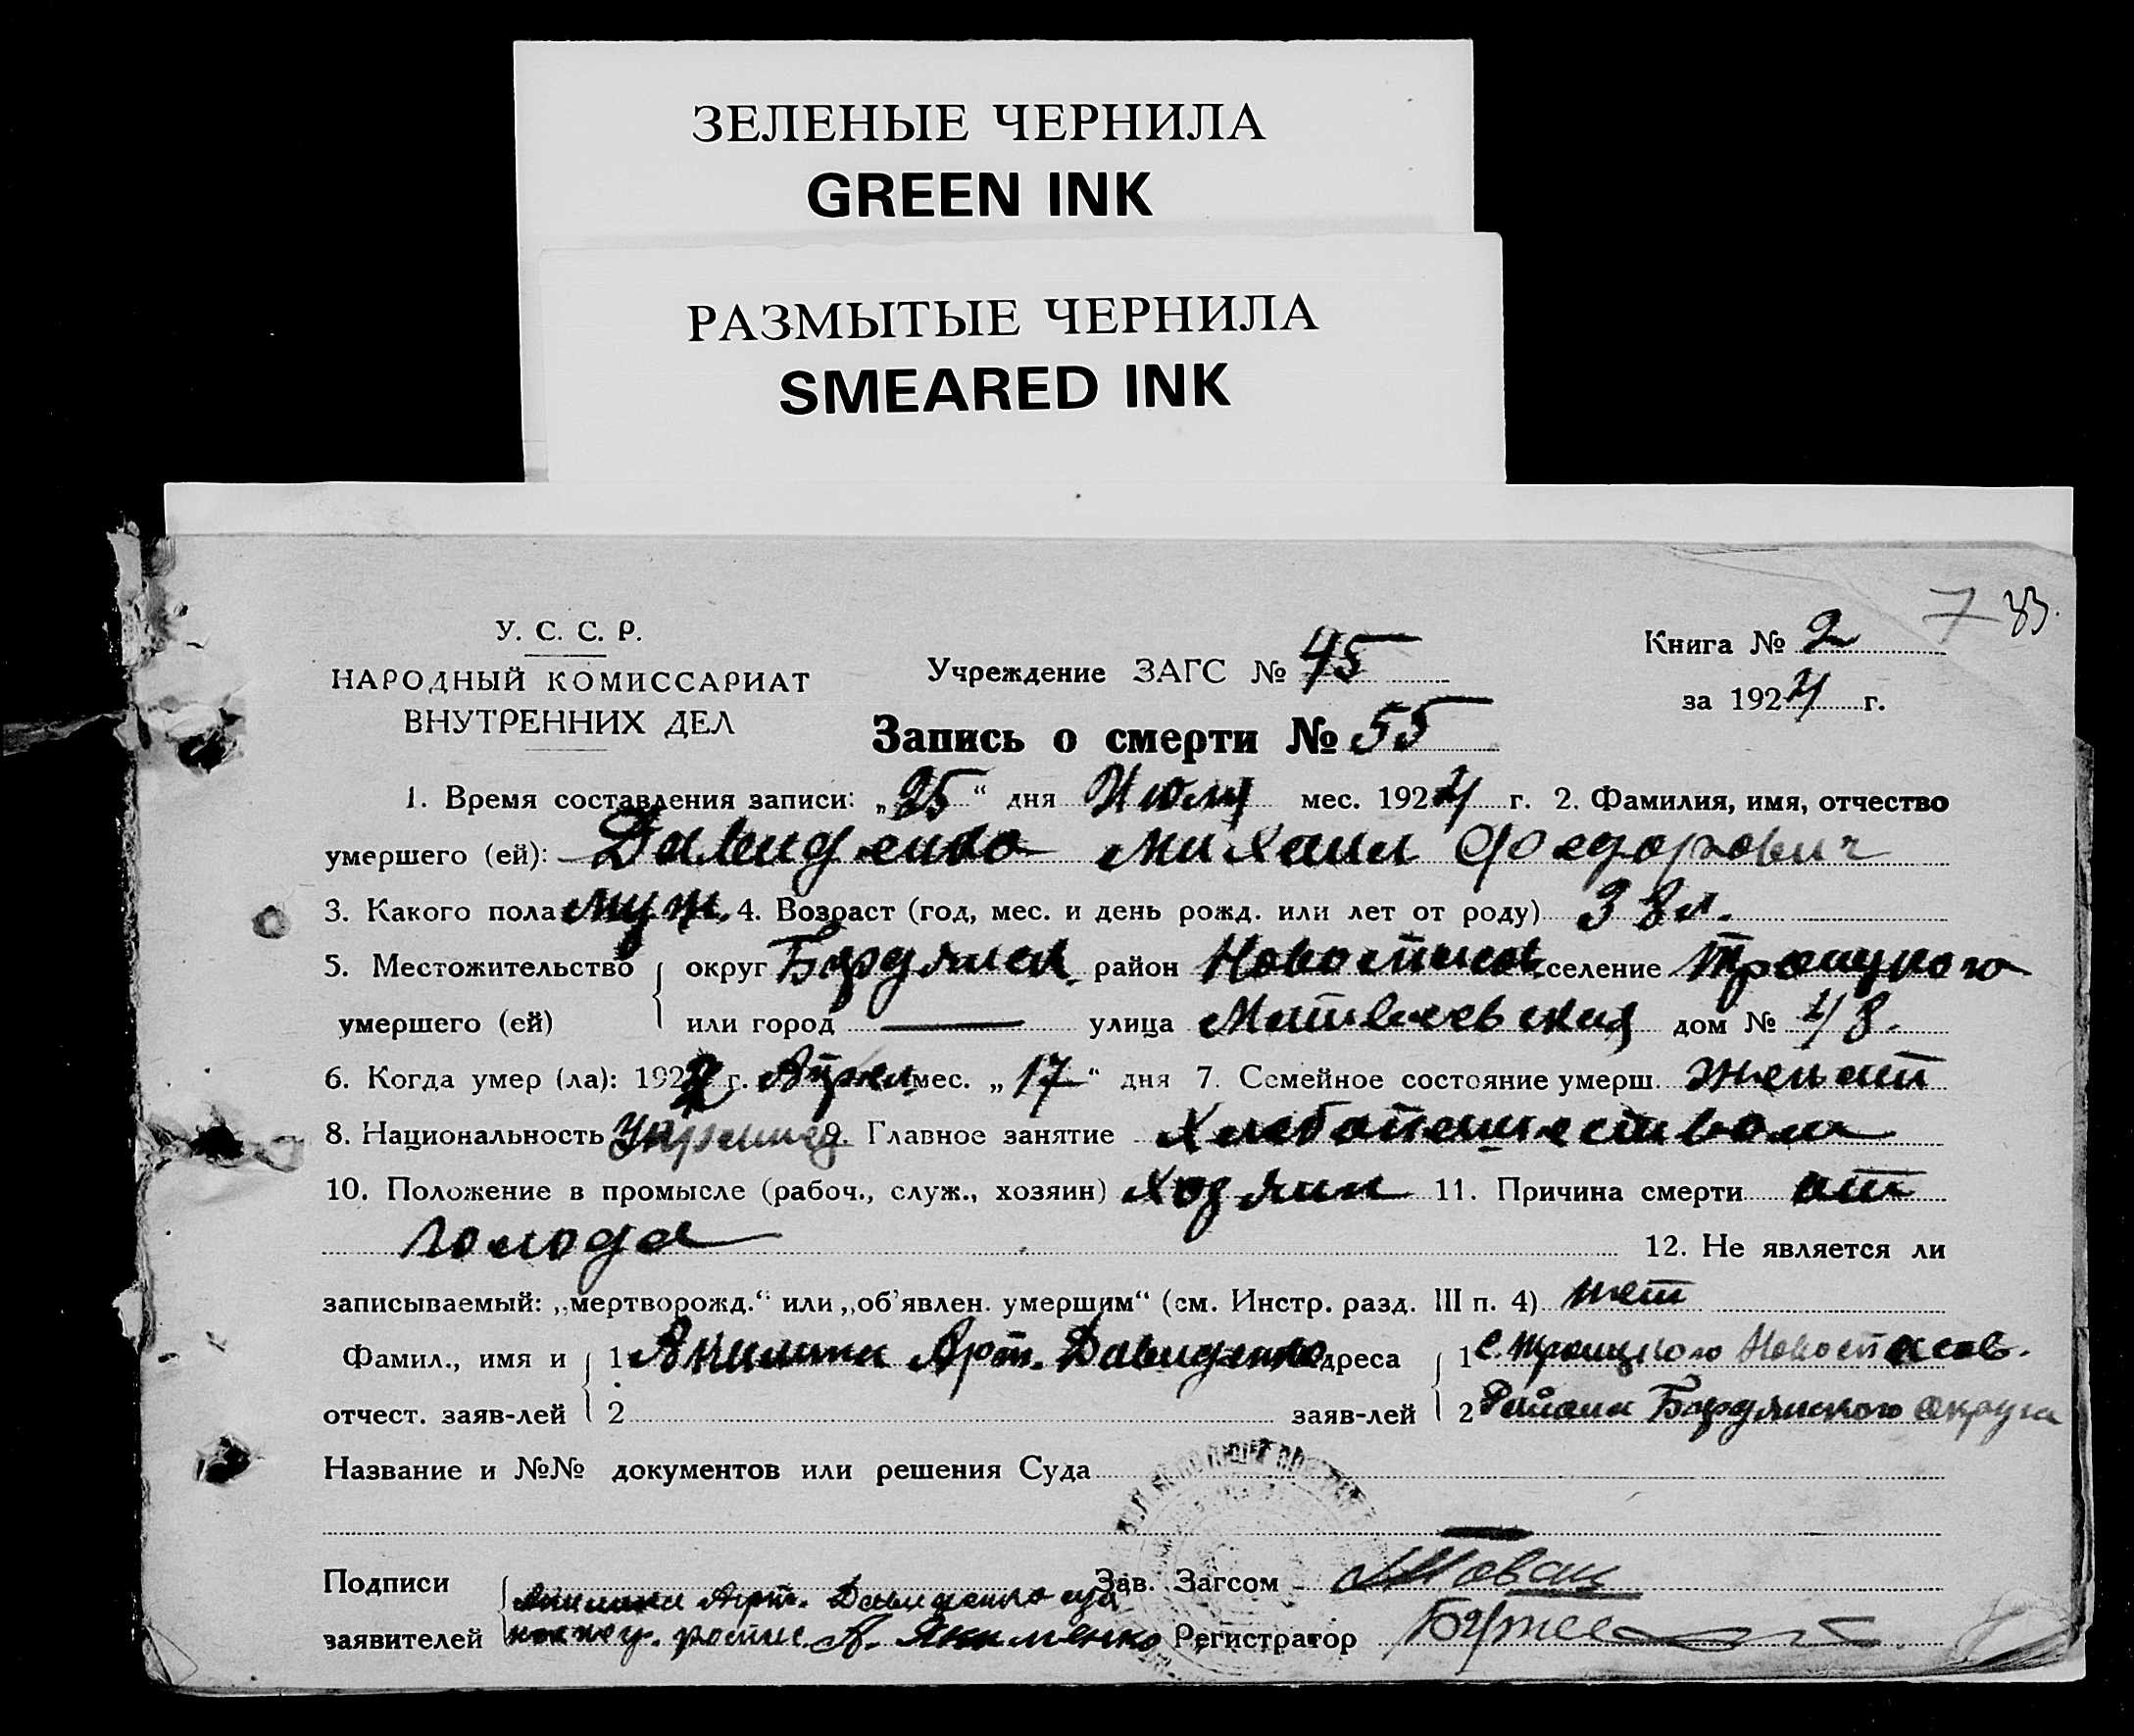 ЗЕЛЕНЫЕ ЧЕРНИЛА
GREEN INK
РАЗМЫТЫЕ ЧЕРНИЛА
SMEARED INK
7 83.
У. С. С. Р.
НАРОДНЫЙ КОМИССАРИАТ
ВНУТРЕННИХ ДЕЛ
Учреждение ЗАГС № 45
Книга № 2
за 1924 г.
Запись о смерти № 55
1. Время составления записи: „25“ дня Июля мес. 1924 г. 2. Фамилия, имя, отчество
умершего (ей): Давиденко Михаил Федорович
3. Какого пола муж. 4. Возраст (год, мес. и день рожд. или лет от роду) 38 л.
5. Местожительство округ Бердянск район Новоспасов селение Троицкого
умершего (ей) или город — улица Матвеевская дом № 48.
6. Когда умер (ла): 1922 г. Апрел мес. „17“ дня 7. Семейное состояние умерш. женат
8. Национальность Украинец 9. Главное занятие Хлебопашеством
10. Положение в промысле (рабоч., служ., хозяин) Хозяин 11. Причина смерти от
голода 12. Не является ли
записываемый: „мертворожд.“ или „об’явлен. умершим“ (см. Инстр. разд. III п. 4) нет
Фамил., имя и 1 Акилина Арт. Давиденко адреса 1 с. Троицкого Новоспасов.
отчест. заяв-лей 2 заяв-лей 2 Района Бердянского округа
Название и №№ документов или решения Суда
Подписи Акилина Арт. Давиденко Зав. Загсом
заявителей А. Якименко Регистратор